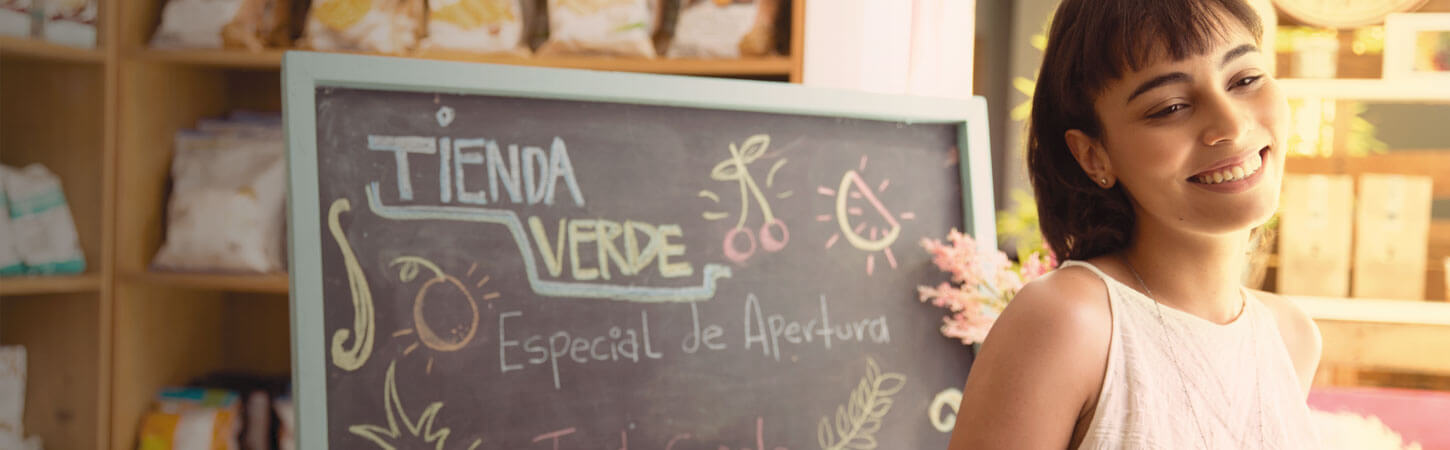 TIENDA
VERDE
Especial de Apertura